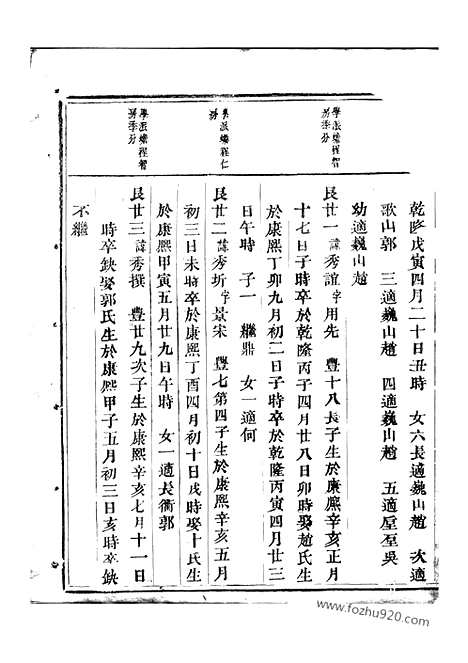 乾隆戊寅四月二十日丑時　女六長適巍山趙　次適
歌山郭　三適巍山趙　四適巍山趙　五適屋至吳
幼適巍山趙
學派燦程智
房季分
良廿一諱秀誼字用先　豐十八長子生於康熈辛亥正月
十七日子時卒於乾隆丙子四月廿八日卯時娶趙氏生
於康熈丁卯九月初二日子時卒於乾隆丙寅四月廿三
日午時　子一　繼鼎　女一適何
派燦程仁
房
良廿二諱秀圻字景宋　豐七第四子生於康熈辛亥五月
初三日未時卒於康熈丁酉四月初十日戌時娶十氏生
於康熈甲寅五月廿九日午時　女一適長衝郭
學派燦程智
房季分
良廿三諱秀撰　豐廿九次子生於康熈辛亥七月十一日
時卒缺娶郭氏生於康熈甲子五月初三日亥時卒缺
不繼
www.fozhu920.com